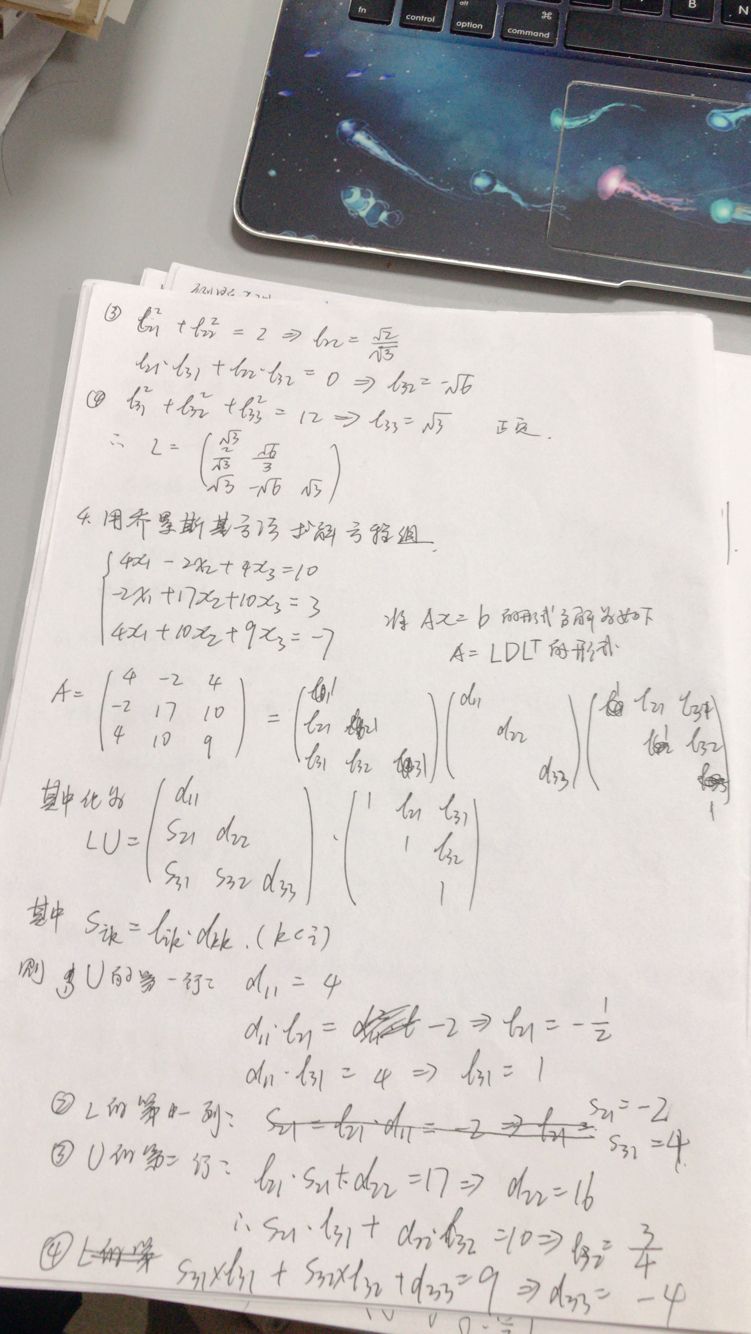 fn
control
alt
option
⌘
command
B
N
③ l₂₁² + l₂₂² = 2 ⇒ l₂₂ = √2/√3
l₂₁·l₃₁ + l₂₂·l₃₂ = 0 ⇒ l₃₂ = -√6
④ l₃₁² + l₃₂² + l₃₃² = 12 ⇒ l₃₃ = √3 正定.
∴ L = ( √3
2/√3 √6/3
√3 -√6 √3 )
4. 用乔里斯基方法求解方程组.
4x₁ - 2x₂ + 4x₃ = 10
-2x₁ + 17x₂ + 10x₃ = 3
4x₁ + 10x₂ + 9x₃ = -7
将 Ax = b 的形式分解为如下
A = LDLᵀ 的形式
A = ( 4 -2 4
-2 17 10
4 10 9 )
= ( 1
l₂₁ 1
l₃₁ l₃₂ 1 )
( d₁₁
d₂₂
d₃₃ )
( 1 l₂₁ l₃₁
1 l₃₂
1 )
其中化为
LU = ( d₁₁
S₂₁ d₂₂
S₃₁ S₃₂ d₃₃ )
· ( 1 l₂₁ l₃₁
1 l₃₂
1 )
其中 Sᵢₖ = lᵢₖ·dₖₖ. (k<i)
则 ① U的第一行: d₁₁ = 4
d₁₁·l₂₁ = -2 ⇒ l₂₁ = -1/2
d₁₁·l₃₁ = 4 ⇒ l₃₁ = 1
② L的第一列: S₂₁ = l₂₁·d₁₁ = -2 ⇒ l₂₁ = S₂₁ = -2
S₃₁ = 4
③ U的第二行: l₂₁·S₂₁ + d₂₂ = 17 ⇒ d₂₂ = 16
∴ S₂₁·l₃₁ + d₂₂·l₃₂ = 10 ⇒ l₃₂ = 3/4
④ L的第 S₃₁×l₃₁ + S₃₂×l₃₂ + d₃₃ = 9 ⇒ d₃₃ = -4